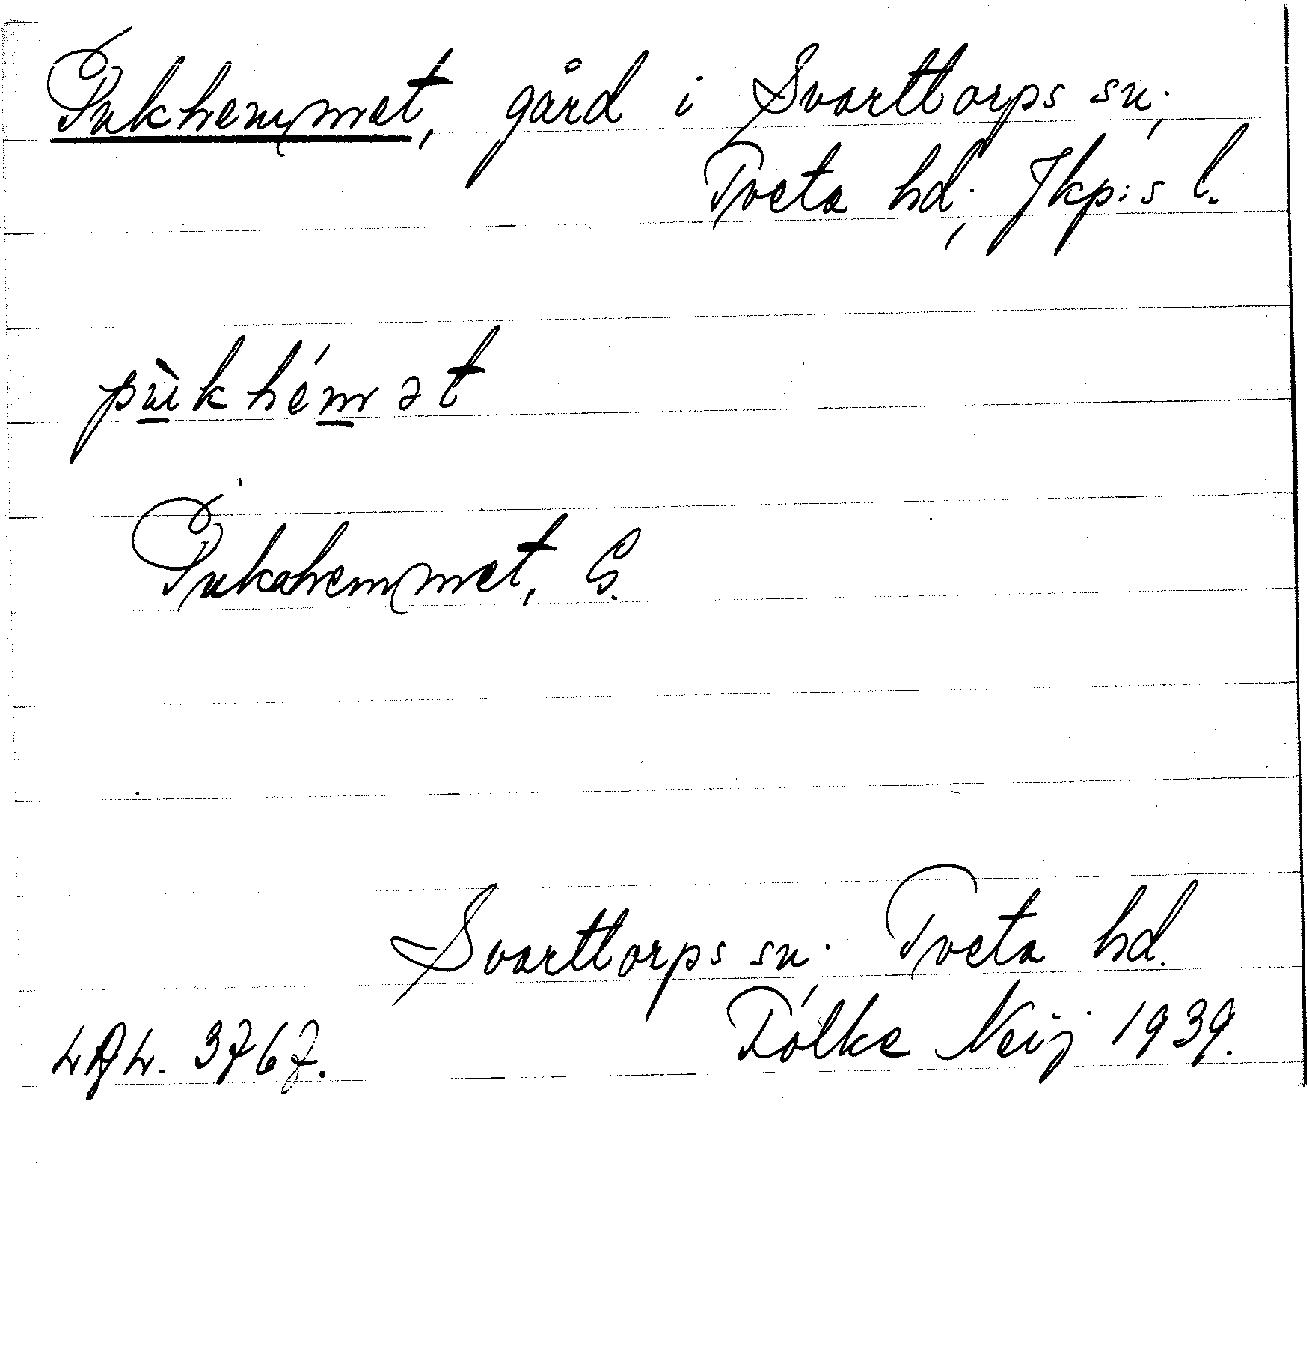 Pukhemmet, gård i Svarttorps sn;
Tveta hd; Jkp:s l.
pùkhémət
Pukahemmet, G.
Svarttorps sn. Tveta hd.
LAL. 3767. Folke Neij 1939.